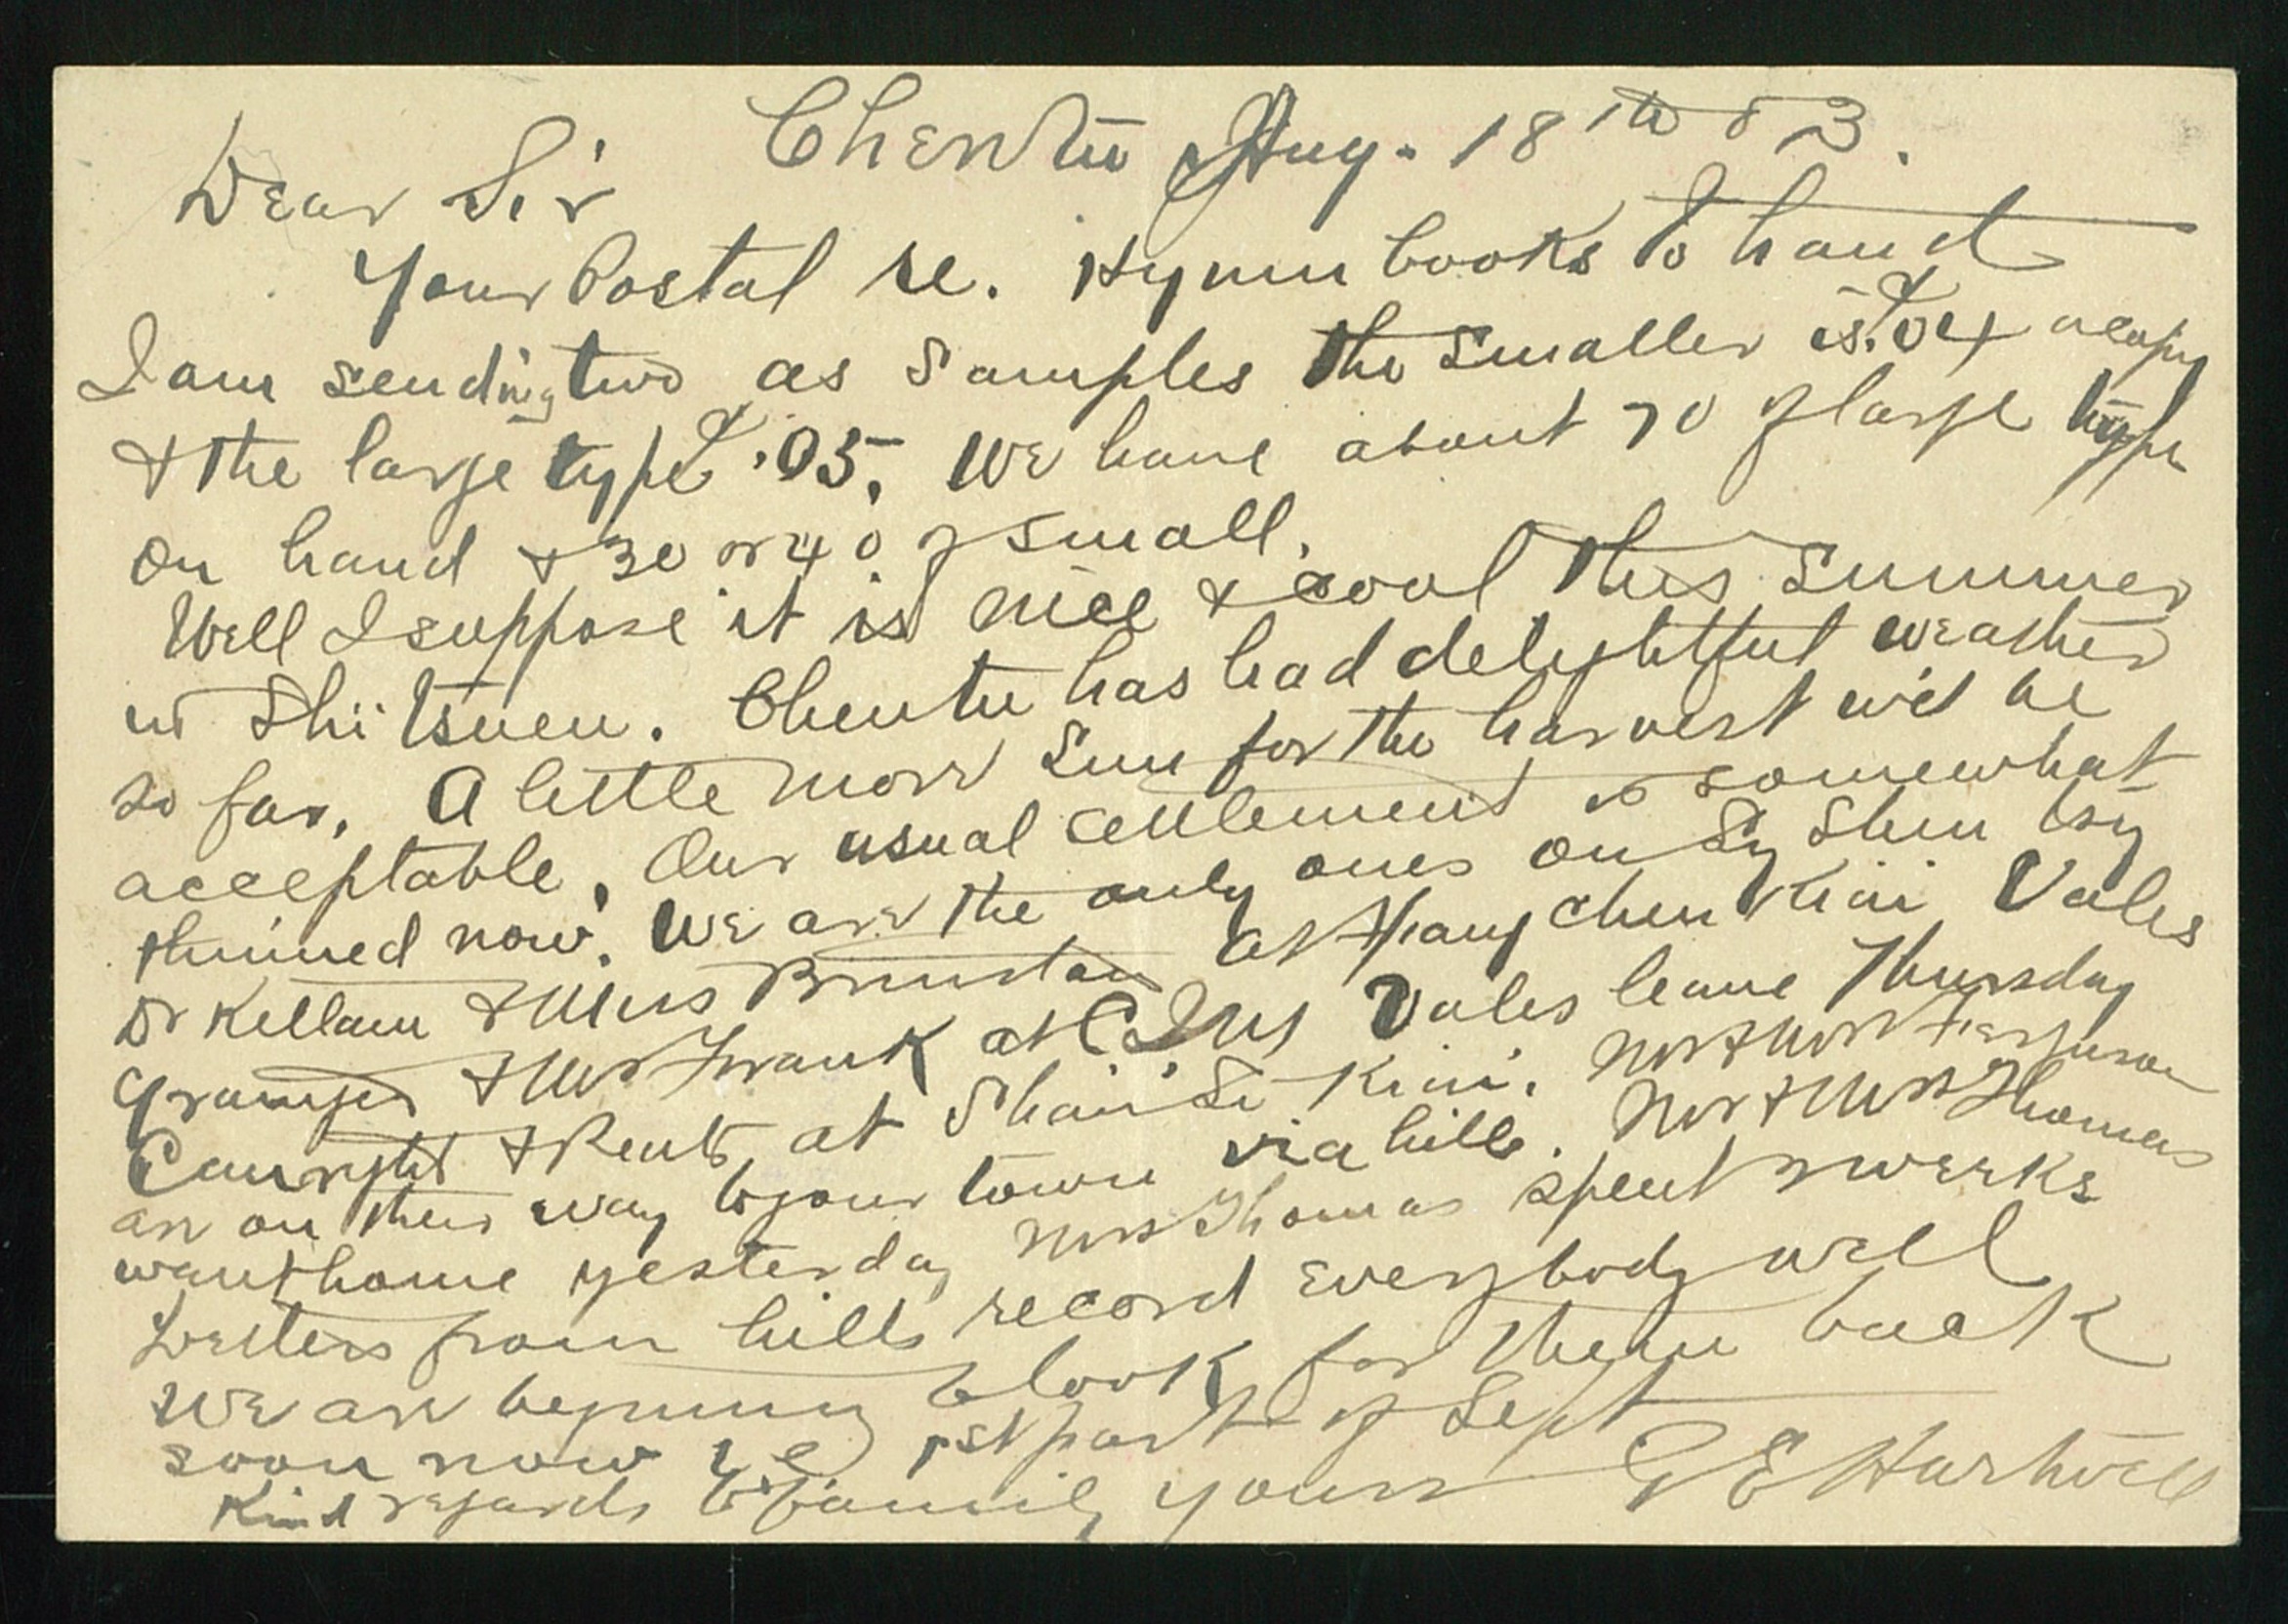 Chentu Aug. 18th 03.
Dear Sir
Your Postal re. Hymn books to hand
I am sending two as samples the smaller is $.04 a copy
& the large type $.05. We have about 70 of large type
on hand & 30 or 40 of small.
Well I suppose it is nice & cool this summer
in Shïtsuen. Chentu has had delightful weather
so far. A little more sun for the harvest w'd be
acceptable. Our usual settlement is somewhat
thinned now. We are the only ones on Sy Shen tsy
Dr Killam & Miss Brimstin at Yang chen Kiai Vales
& Mr Frank at C.I.M. Vales leave Thursday
Canright & Rent at Shai Si Kiai. Mr & Mrs Ferguson
are on their way to your town via hills. Mr & Mrs Thomas
want home yesterday Mrs Thomas spent 2 weeks
Letters from hills record everybody well
We are begining to look for them back
soon now i e 1st part of Sept
Kind regards to family yours G E Hartwell